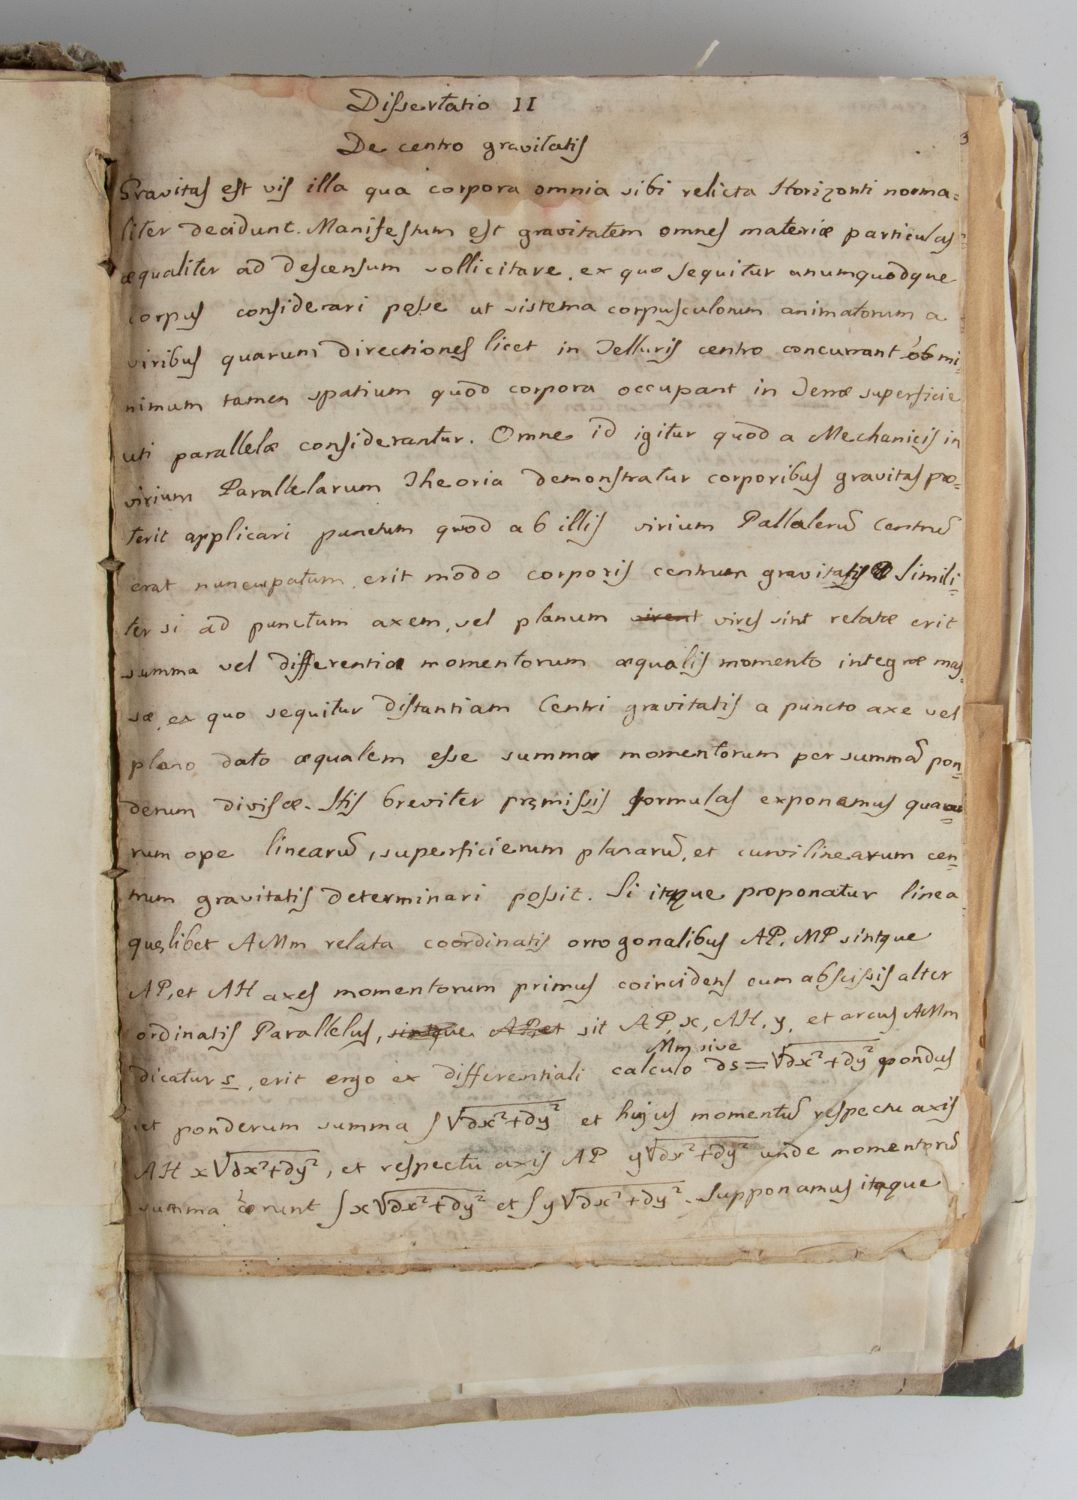 Dissertatio II
3
De centro gravitatis
Gravitas est vis illa qua corpora omnia sibi relicta Horizonti norma=
liter decidunt. Manifestum est gravitatem omnes materiæ particulas
æqualiter ad descensum sollicitare, ex quo sequitur unumquodque
corpus considerari posse ut sistema corpusculorum animatorum a
viribus quarum directiones licet in Telluris centro concurrant ob mi=
nimum tamen spatium quod corpora occupant in Terræ superficie
uti parallelæ considerantur. Omne id igitur quod a Mechanicis in
virium Parallelarum Theoria demonstratur corporibus gravitas po=
terit applicari punctum quod ab illis virium Pallalerũ Centrũ
erat nuncupatum, erit modo corporis centrum gravitatis Simili=
ter si ad punctum axem, vel planum virent vires sint relatæ erit
summa vel differentia momentorum æqualis momento integræ mas=
sæ, ex quo sequitur distantiam Centri gravitatis a puncto axe vel
plano dato æqualem esse summæ momentorum per summã pon=
derum divisæ. His breviter præmissis formulas exponamus quar=
rum ope linearũ, superficierum planarũ, et curvilinearum cen=
trum gravitatis determinari possit. Si itaque proponatur linea
quęlibet AMm relata coordinatis orrogonalibus AP, MP sintque
AP, et AH axes momentorum primus coincidens cum abscissis alter
ordinatis Parallelus, sintque AP, et sit AP, x, AH, y, et arcus AMm
Mm sive
dicatur s, erit ergo ex differentiali calculo ds=√dx²+dy² pondus
et ponderum summa ∫√dx²+dy² et hujus momentũ respectu axis
AH x√dx²+dy², et respectu axis AP y√dx²+dy² unde momentorũ
summa erunt ∫x√dx²+dy² et ∫y√dx²+dy². Supponamus itaque